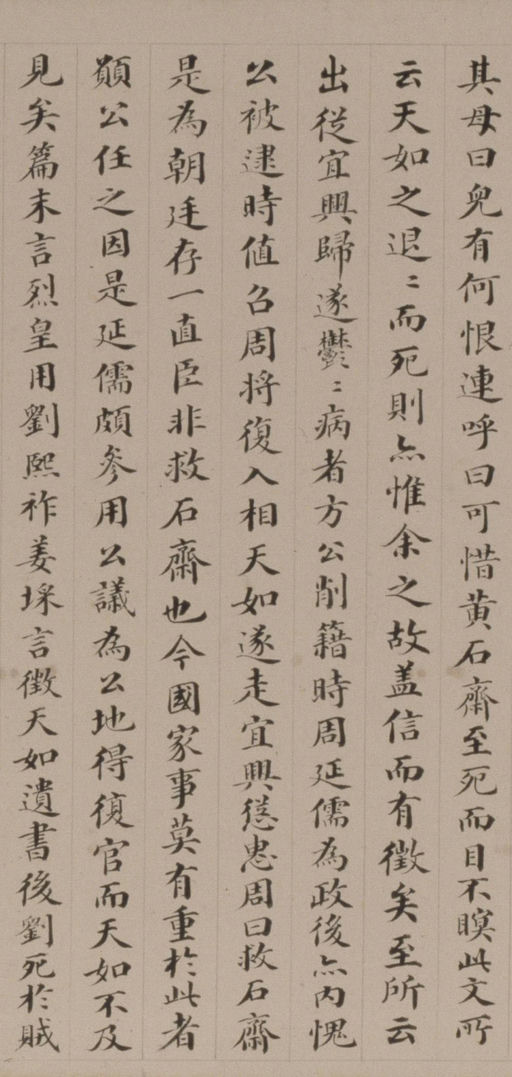 其母曰兒有何恨連呼曰可惜黃石齋至死而目不瞑此文所
云天如之退〻而死則亦惟余之故盖信而有徵矣至所云
出從宜興歸遂鬱〻病者方公削籍時周延儒為政後亦內愧
公被逮時值召周將復入相天如遂走宜興慫恿周曰救石齋
是為朝廷存一直臣非救石齋也今國家事莫有重於此者
顧公任之因是延儒頗參用公議為公地得復官而天如不及
見矣篇末言烈皇用劉熙祚姜埰言徵天如遺書後劉死於賊